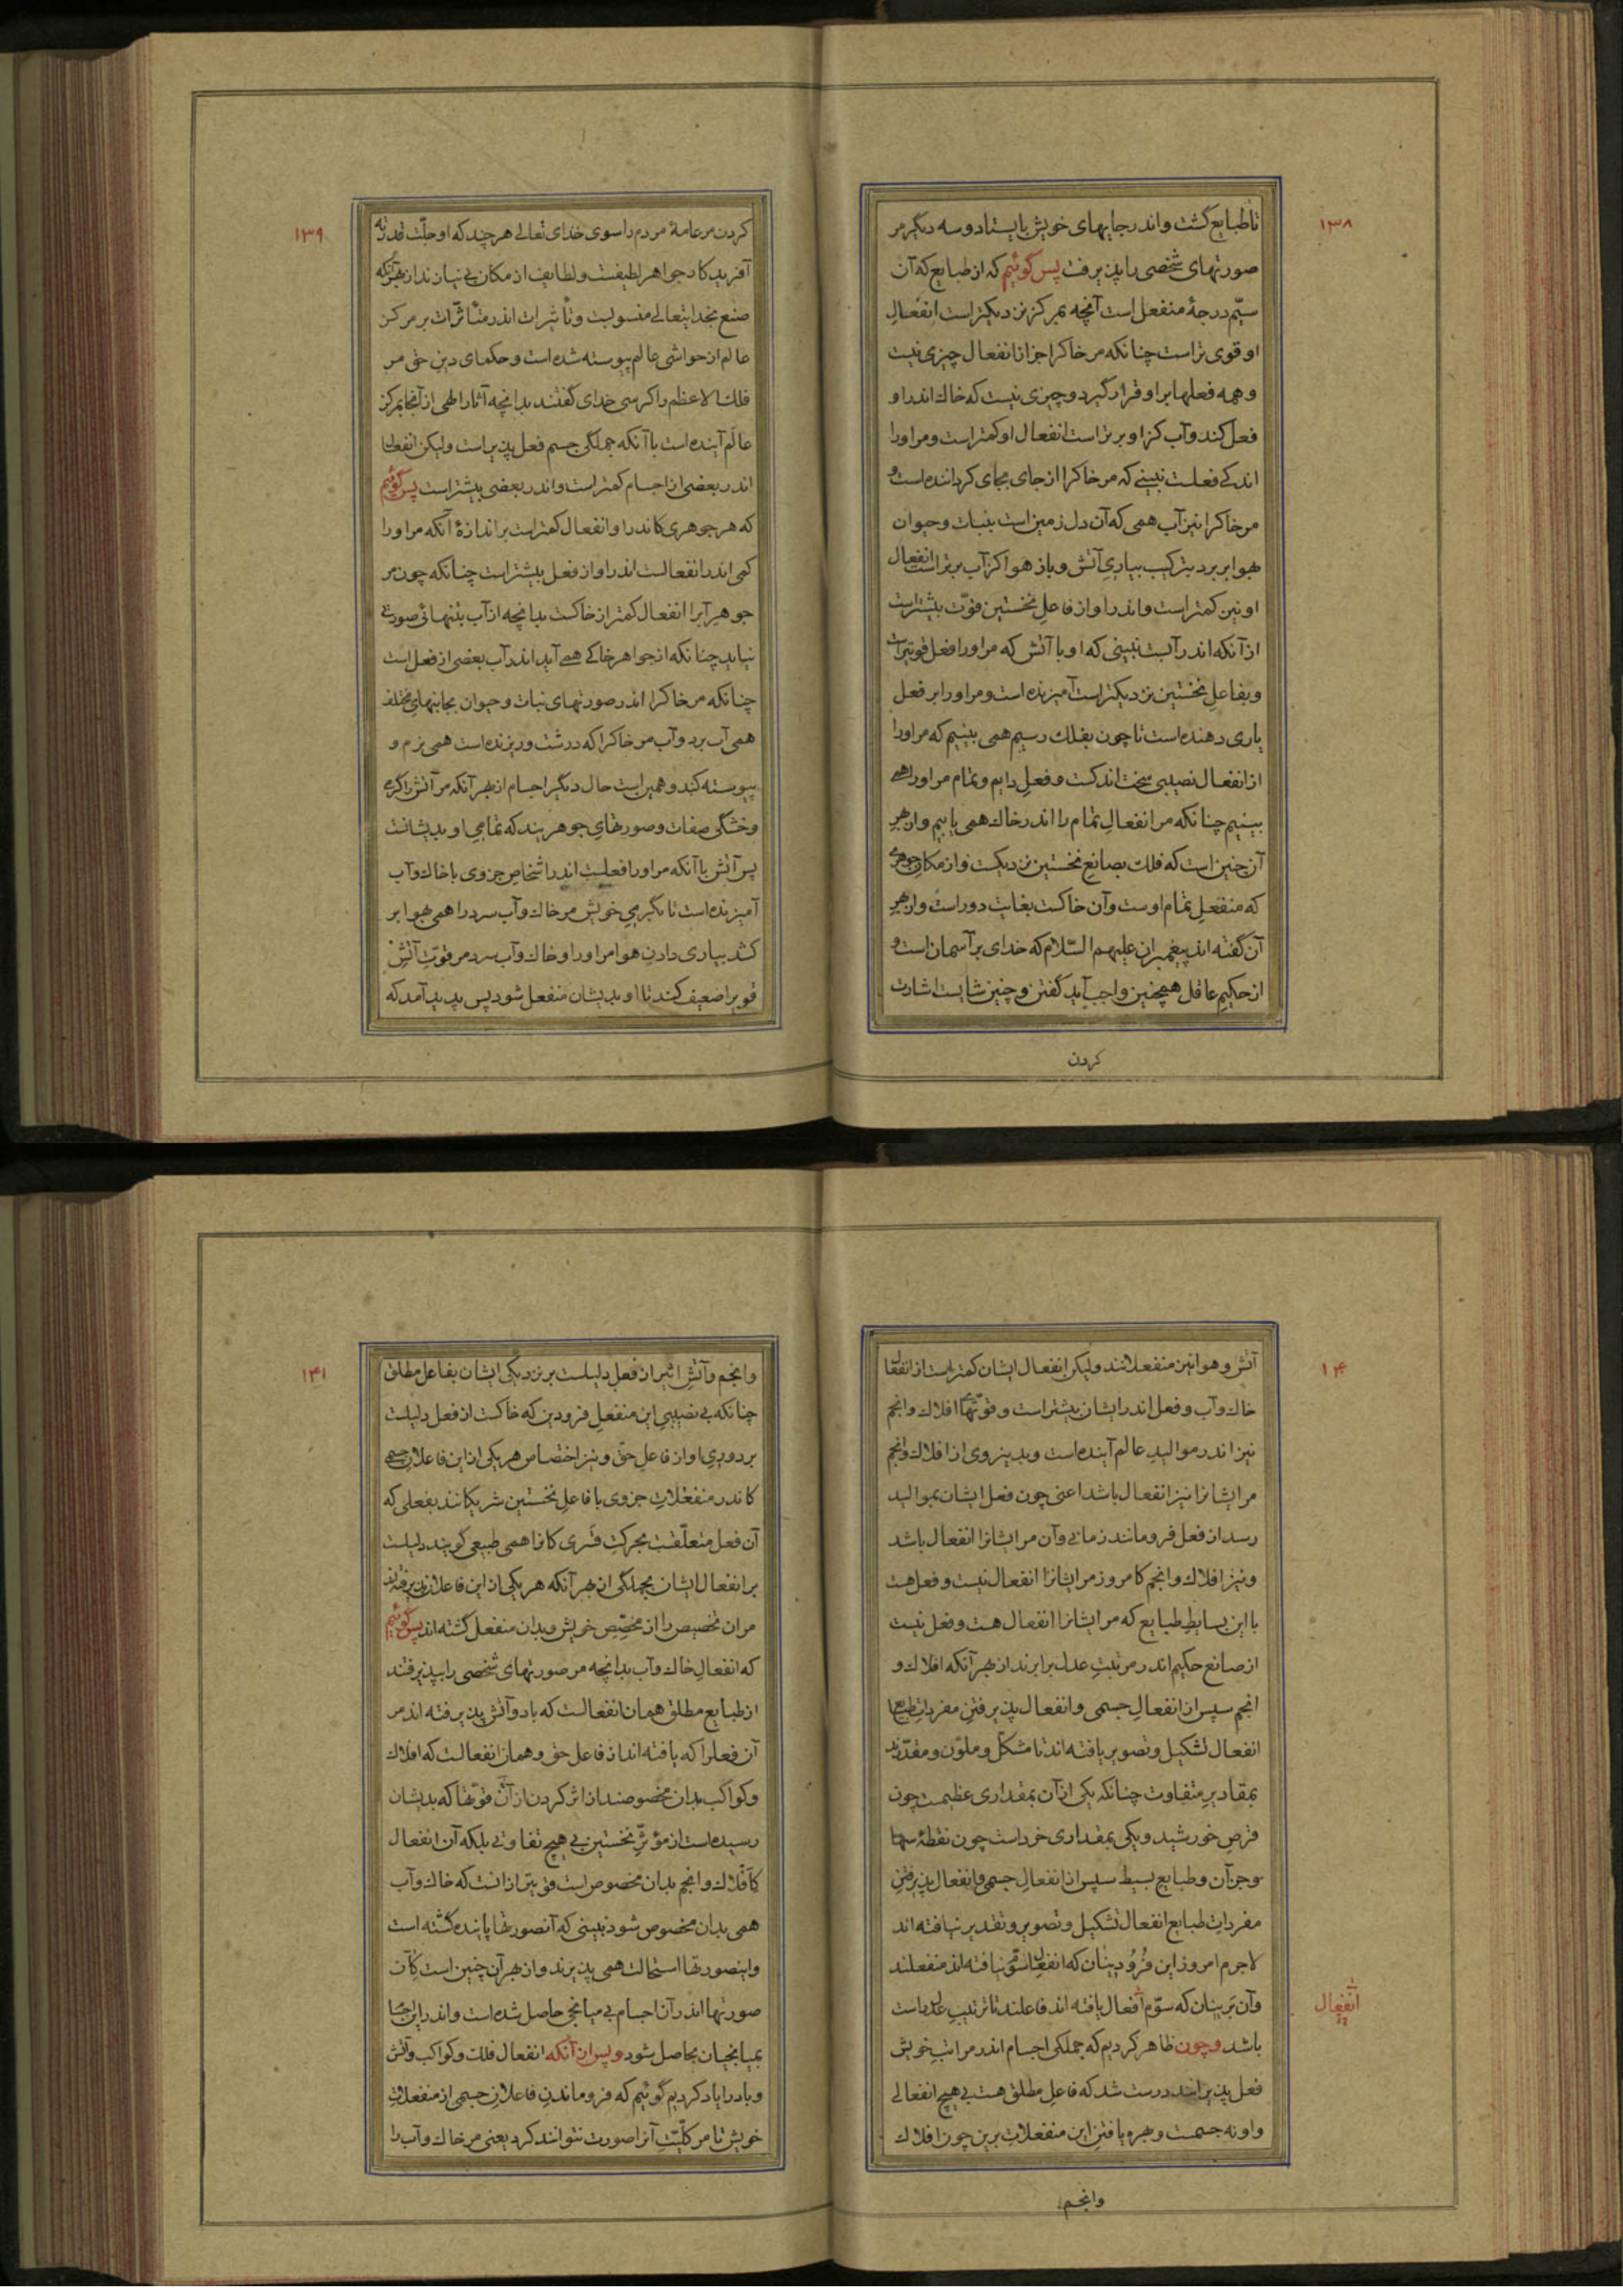 ۱۳۸
تا طبایع گشت و اندر جایهای خویش بایستاد و سه دیگر مر
صورتهای شخصی را پذیرفت پس گوئیم که از طبایع که آن
سیّم درجهٔ منفعل است آنچه بمرکز نزدیکتر است انفعالِ
او قوی تر است چنانکه مر خاکرا جز از انفعال چیزی نیست
و همه فعلها بر او قرار گیرد و چیزی نیست که خاک اندر او
فعل کند و آب کز او برتر است انفعال او کمتر است و مر او را
اندکی فعلست نبینی که مر خاکرا از جای بجای گرداننده است و
مر خاکرا نیز آب همی که آن دل زمین است بنبات و حیوان
بهوا بر برد بترکیب بیاریِ آتش و باز هوا کز آب برتر است انفعال
او نیز کمتر است و اندر او از فاعلِ نخستین قوّت بیشتر است
از آنکه اندر آبست نبینی که او با آتش که مر او را فعل قویتر است
و بفاعلِ نخستین نزدیکتر است آمیزنده است و مر او را بر فعل
یاری دهنده است تا چون بفلک رسیم همی بینیم که مر او را
از انفعال نصیبی سخت اندکست و فعلِ دایم و تمام مر او را همی
بینیم چنانکه مر انفعالِ تمام را اندر خاک همی یابیم و از بهرِ
آن چنین است که فلک بصانعِ نخستین نزدیکست و از مکانِ جوهری
که منفعلِ تمام اوست و آن خاکست بغایت دور است و از بهرِ
آن گفته اند پیغمبران علیهم السّلام که خدای بر آسمان است و
از حکیمِ عاقل همچنین واجب آید گفتن و چنین شایست اشارت
کردن
۱۳۹
کردن مر عامهٔ مردم را سوی خدای تعالی هر چند که او جلّت قدرته
آفریدگار جواهر لطیفست و لطایف از مکان بی نیازند از بهر آنکه
صنع بخدایتعالی منسوبست و تأثیرات اندر متأثّرات بر مرکز
عالم از حواشی عالم پیوسته شده است و حکمای دینِ حق مر
فلک الاعظم را کرسی خدای گفتند بدانچه آثار الهی از آنجا بمرکز
عالَم آینده است با آنکه جملگی جسم فعل پذیر است ولیکن انفعال
اندر بعضی از اجسام کمتر است و اندر بعضی بیشتر است پس گوئیم
که هر جوهری کاندر او انفعال کمتر است بر اندازهٔ آنکه مر او را
کمی اندر انفعالست اندر او از فعل بیشتر است چنانکه چون مر
جوهرِ آبرا انفعال کمتر از خاکست بدانچه از آب بتنهائی صورتی
نیاید چنانکه از جواهر خاکی همی آید اندر آب بعضی از فعل است
چنانکه مر خاکرا اندر صورتهای نبات و حیوان بجانبهای مختلف
همی آب برد و آب مر خاکرا که درشت و ریزنده است همی نرم و
پیوسته کند و همین است حال دیگر اجسام از بهر آنکه مر آتش را گرمی
و خشگی صفات و صورتهایِ جوهریند که تمامیِ او بدیشانست
پس آتش با آنکه مر او را فعلست اندر اشخاصِ جزوی با خاک و آب
آمیزنده است تا بگرمیِ خویش مر خاک و آب سرد را همی بهوا بر
کشد بیاری دادنِ هوا مر او را و خاک و آب سرد مر قوّتِ آتشِ
قویرا ضعیف کند تا او بدیشان منفعل شود پس پدید آمد که
۱۴۰
آتش و هوا نیز منفعلانند ولیکن انفعال ایشان کمتر است از انفعال
خاک و آب و فعل اندر ایشان بیشتر است و قوّتهای افلاک و انجم
نیز اندر موالیدِ عالم آینده است و بدینروی از افلاک و انجم
مر ایشانرا نیز انفعال باشد اعنی چون فعل ایشان بموالید
رسد از فعل فرو مانند زمانی و آن مر ایشانرا انفعال باشد
و نیز افلاک و انجم کامروز مر ایشانرا انفعال نیست و فعل هست
با این بسایطِ طبایع که مر ایشانرا انفعال هست و فعل نیست
از صانع حکیم اندر مرتبتِ عدل برابرند از بهر آنکه افلاک و
انجم سپس از انفعالِ جسمی و انفعال پذیرفتنِ مفرداتِ طبایع
انفعال تشکیل و تصویر یافته اند تا مشکّل و ملوّن و مقدّرند
بمقادیرِ متفاوت چنانکه یکی از آن بمقداری عظیمست چون
قرصِ خورشید و یکی بمقداری خرد است چون نقطهٔ سها
و جز آن و طبایع بسیط سپس از انفعالِ جسمی و انفعال پذیرفتنِ
مفرداتِ طبایع انفعال تشکیل و تصویر و تقدیر نیافته اند
لاجرم امروز این فُرُودینان که انفعال سوّم نیافته اند منفعلند
و آن بَرینان که سوّم انفعال یافته اند فاعلند تا ترتیبِ عدل راست
انفعال
باشد و چون ظاهر کردیم که جملگی اجسام اندر مراتبِ خویش
فعل پذیرانند درست شد که فاعلِ مطلق هست بی هیچ انفعالی
و او نه جسمست و بهره یافتنِ این منفعلاتِ برین چون افلاک
وانجم
۱۴۱
و انجم و آتشِ اثیر از فعل دلیلست بر نزدیکی ایشان بفاعل مطلق
چنانکه بی نصیبیِ این منفعلِ فرودین که خاکست از فعل دلیلست
بر دوریِ او از فاعلِ حقّ و نیز اختصاص هر یکی از این فاعلانِ جسمی
کاندر منفعلاتِ جزوی با فاعلِ نخستین شریکانند بفعلی که
آن فعل متعلّقست بحرکتِ قَسری کانرا همی طبیعی گویند دلیلست
بر انفعال ایشان بجملگی از بهر آنکه هر یکی از این فاعلان پذیرفته اند
مر آن تخصیص را از مخصّصِ خویش و بدان منفعل گشته اند پس گوئیم
که انفعالِ خاک و آب بدانچه مر صورتهای شخصی را بپذیرفتند
از طبایع مطلق همان انفعالست که باد و آتش پذیرفته اند مر
آن فعلرا که یافته اند از فاعل حق و همان انفعالست که افلاک
و کواکب بدان مخصوصند از اثر کردن از آن قوّتها که بدیشان
رسیده است از مؤثّرِ نخستین بی هیچ تفاوتی بلکه آن انفعال
کافلاک و انجم بدان مخصوص است قویتر از انست که خاک و آب
همی بدان مخصوص شود نبینی که آنصورتها پاینده گشته است
و اینصورتها استحالت همی پذیرند و از بهر آن چنین است کان
صورتها اندر آن اجسام بی میانجی حاصل شده است و اندر این اجسام
بمیانجیان حاصل شود و پس از آنکه انفعال فلک و کواکب و آتش
و باد را یاد کردیم گوئیم که فرو ماندنِ فاعلانِ جسمی از منفعلاتِ
خویش تا مر کلّیّتِ آنرا صورت نتوانند کرد یعنی مر خاک و آب را